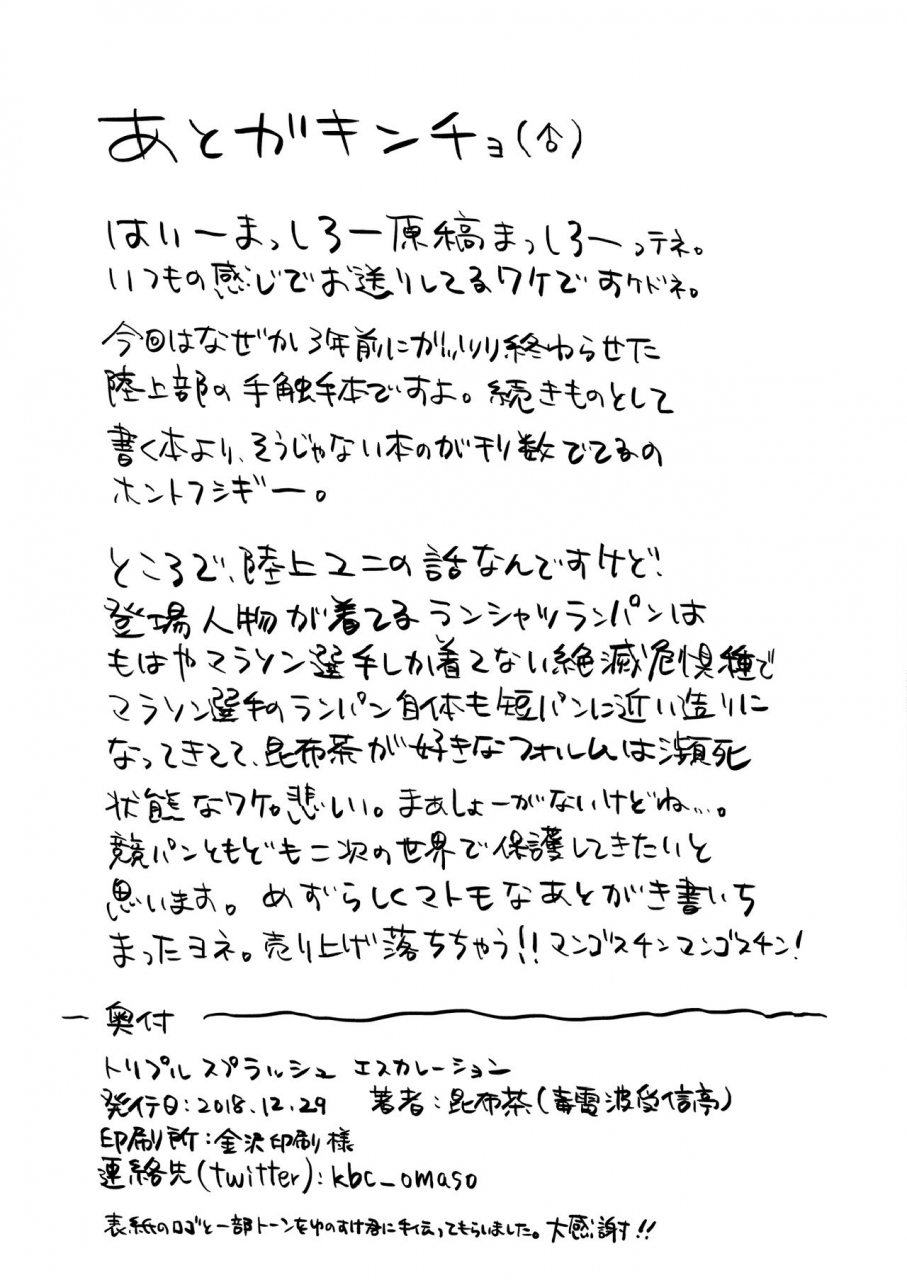 あとがキンチョ(合)
はいーまっしろー原稿まっしろーってネ。
いつもの感じでお送りしてるワケですケドネ。
今回はなぜか3年前にガッツリ終わらせた
陸上部の手触手本ですよ。続きものとして
書く本より、そうじゃない本のが刊数でてるの
ホントフシギー。
ところで、陸上ユニの話なんですけど!
登場人物が着てるランシャツランパンは
もはやマラソン選手しか着てない絶滅危惧種で
マラソン選手のランパン自体も短パンに近い造りに
なってきてて、昆布茶が好きなフォルムは瀕死
状態なワケ。悲しい。まぁしょーがないけどね…。
競パンともども二次の世界で保護してきたいと
思います。めずらしくマトモなあとがき書いち
まったヨネ。売り上げ落ちちゃう!!マンゴスチンマンゴスチン!
奥付
トリプルスプラルシュ エスカレーション
発行日:2018.12.29 著者:昆布茶(毒電波受信亭)
印刷所:金沢印刷様
連絡先(twitter):kbc_omaso
表紙のロゴと一部トーンをゆのすけ君に手伝ってもらいました。大感謝!!